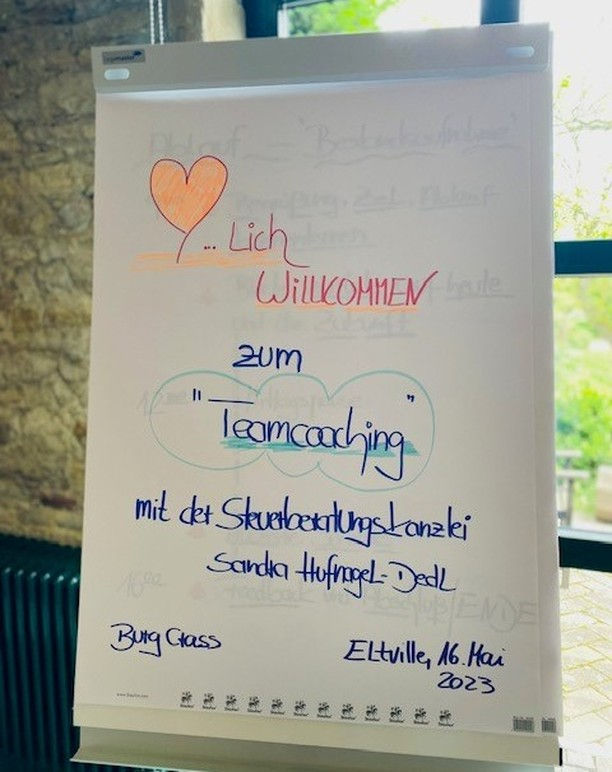 ... Lich
WiLLKOMMEN
zum
"Teamcoaching"
mit der Steuerberatungskanzlei
Sandra HufnageL-DedL
Burg Crass
ELtville, 16. Mai
2023